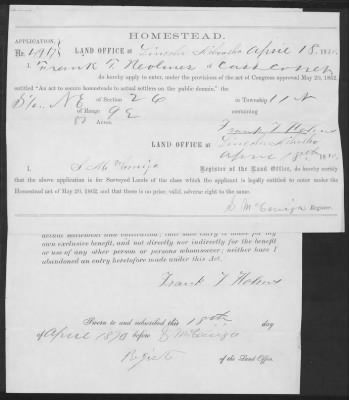 HOMESTEAD.
APPLICATION
No. 1917
LAND OFFICE at Lincoln Nebraska April 18, 1870.
I, Frank T. of Cass County
do hereby apply to enter, under the provisions of the act of Congress approved May 20, 1862,
entitled "An act to secure homesteads to actual settlers on the public domain," the
NE of Section 26 in Township 11 N
of Range 9 E containing
80 Acres.
Frank T Holmes
LAND OFFICE at Lincoln Nebraska
April 18th 1870.
I, S. McConiga Register of the Land Office, do hereby certify
that the above application is for Surveyed Lands of the class which the applicant is legally entitled to enter under the
Homestead act of May 20, 1862, and that there is no prior, valid adverse right to the same.
S. McConiga Register.
actual settlement and cultivation; that said entry is made for my
own exclusive benefit, and not directly nor indirectly for the benefit
or use of any other person or persons whomsoever; neither have I
abandoned an entry heretofore made under this Act.
Frank T Holmes
Sworn to and subscribed this 18th day
of April 1870 before S McConiga
Register of the Land Office.